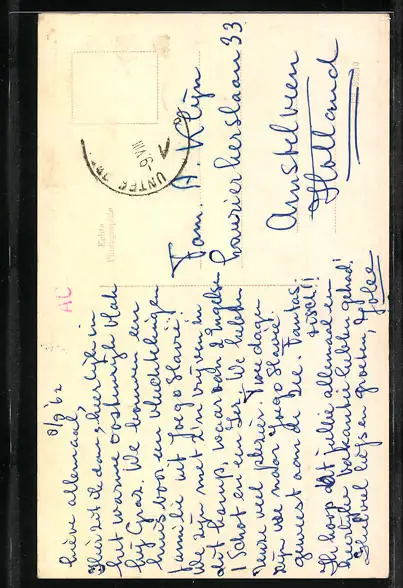 8/9 '62
Lieve allemaal,
Hier zit ik dan, heerlijk in
het warme Oostenrijk vlak
bij Graz. We bouwen een
huis voor een vluchtelingen
familie uit Joego Slavië!
We zijn met z'n vijven in
dit kamp, waarvan 2 Engelsen
1 Schot en een Ier. We hebben
veel plezier. Twee dagen
zijn we naar Joego Slavië
geweest aan de zee. Fantas-
tisch!!
Ik hoop dat jullie allemaal een
heerlijke vakantie hebben gehad!
Heel veel liefs en groeten,
Fam. A. Klijn
Laurierherslaan 33
Amstelveen
Holland
Echte
Photographie
UNTER
-6.VIII
AU